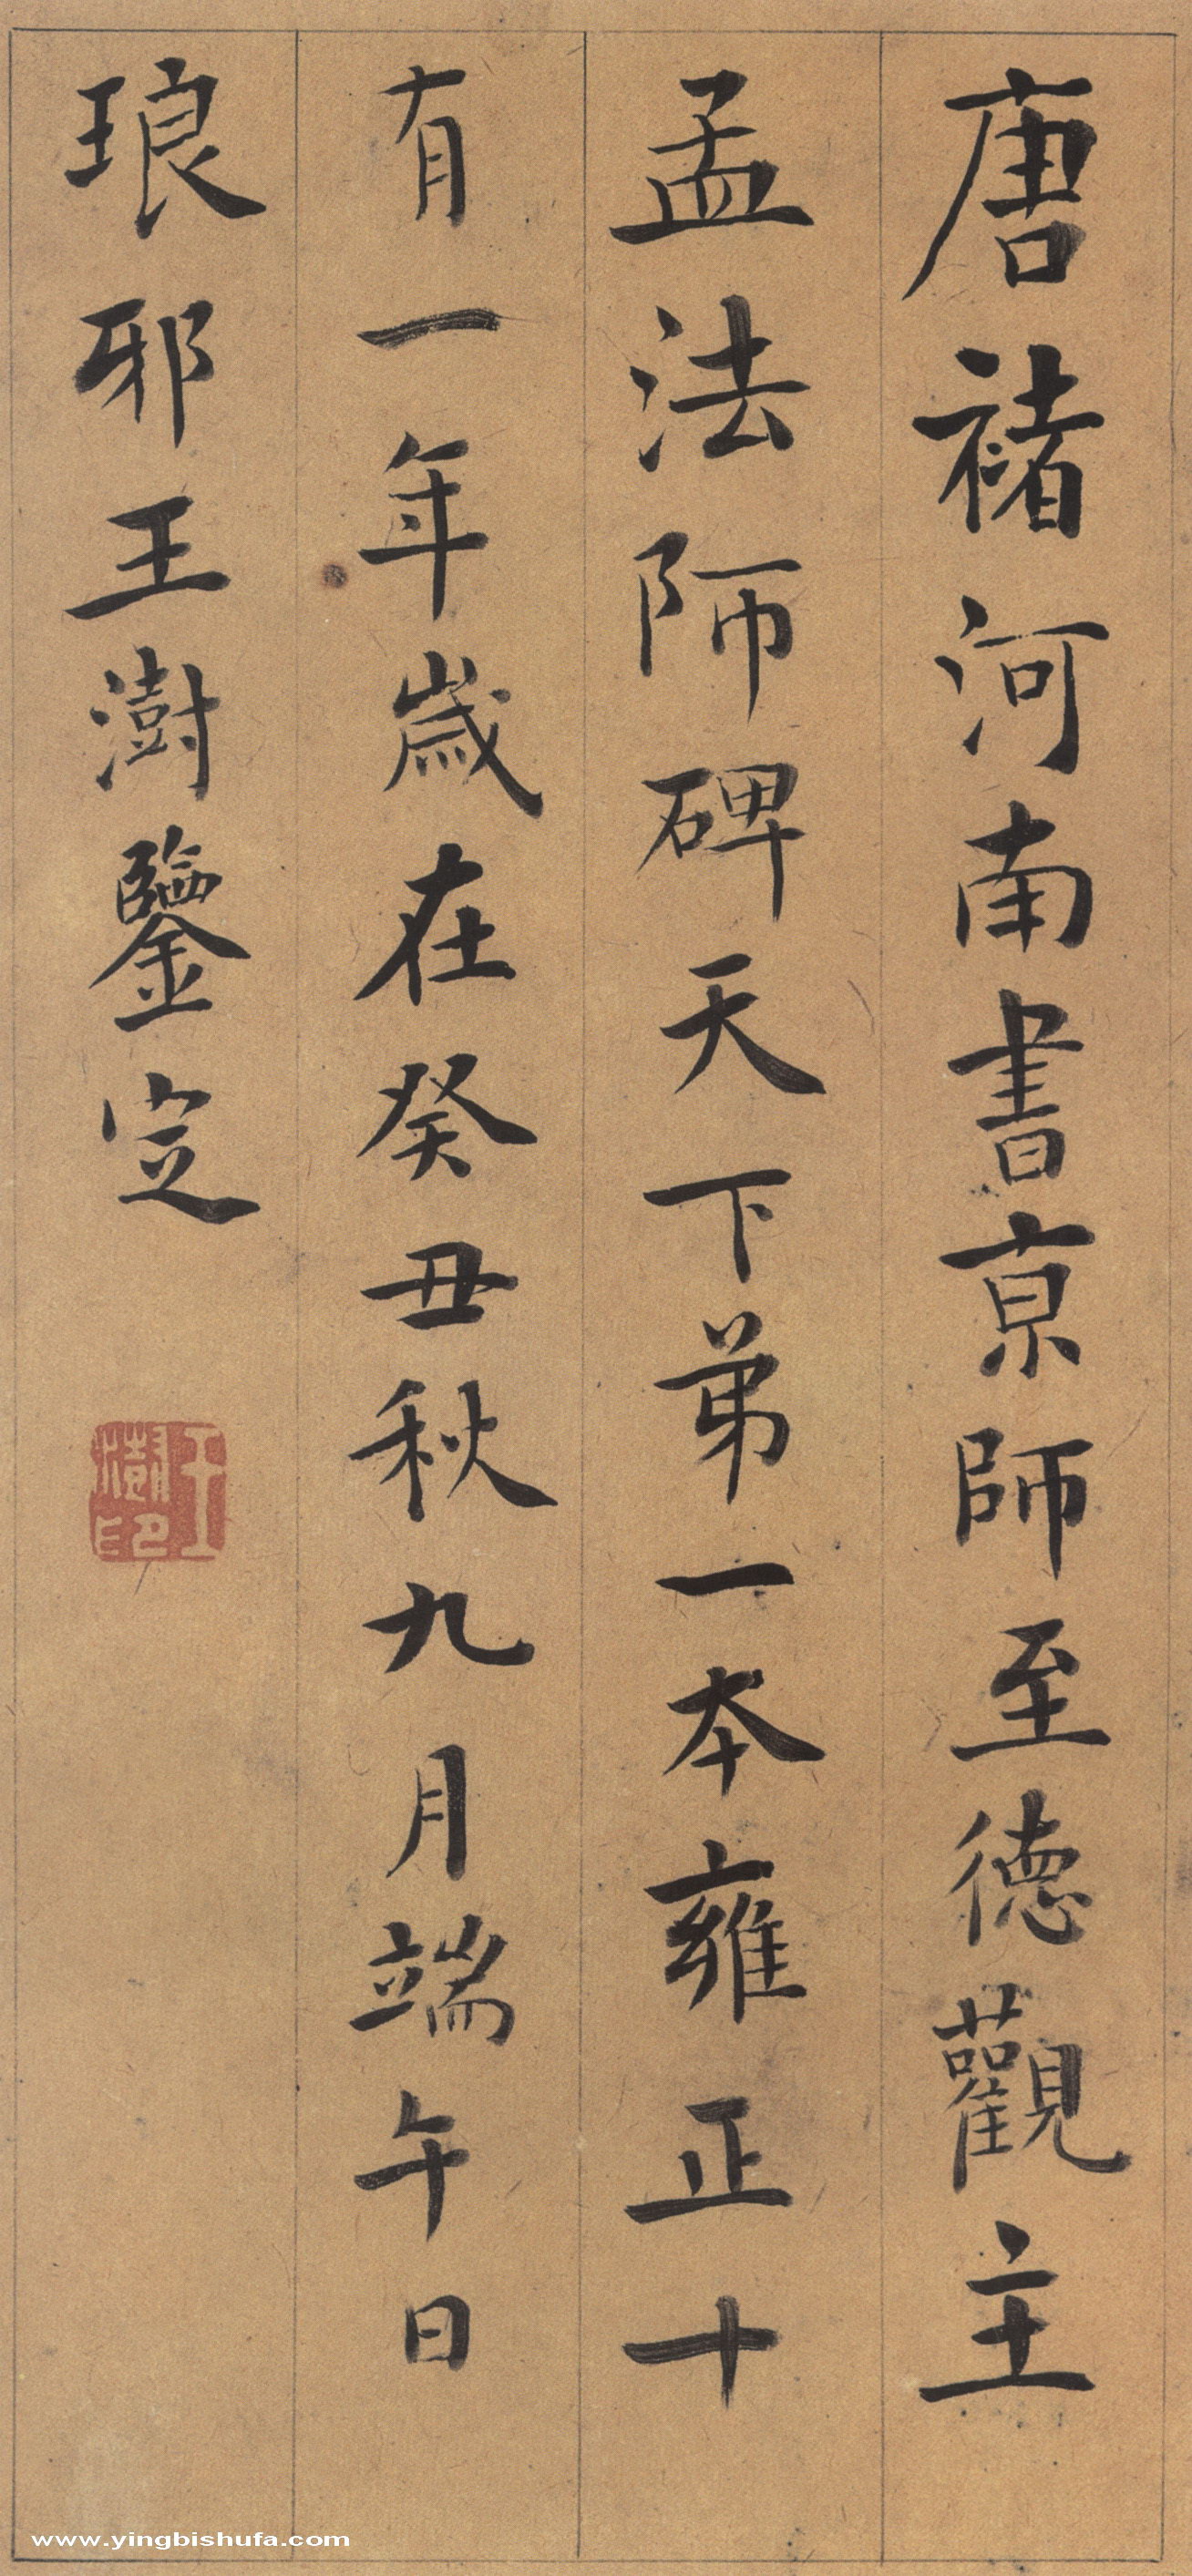 唐褚河南書京師至德觀主
孟法師碑天下弟一本雍正十
有一年歲在癸丑秋九月端午日
琅邪王澍鑒定
王澍印
www.yingbishufa.com